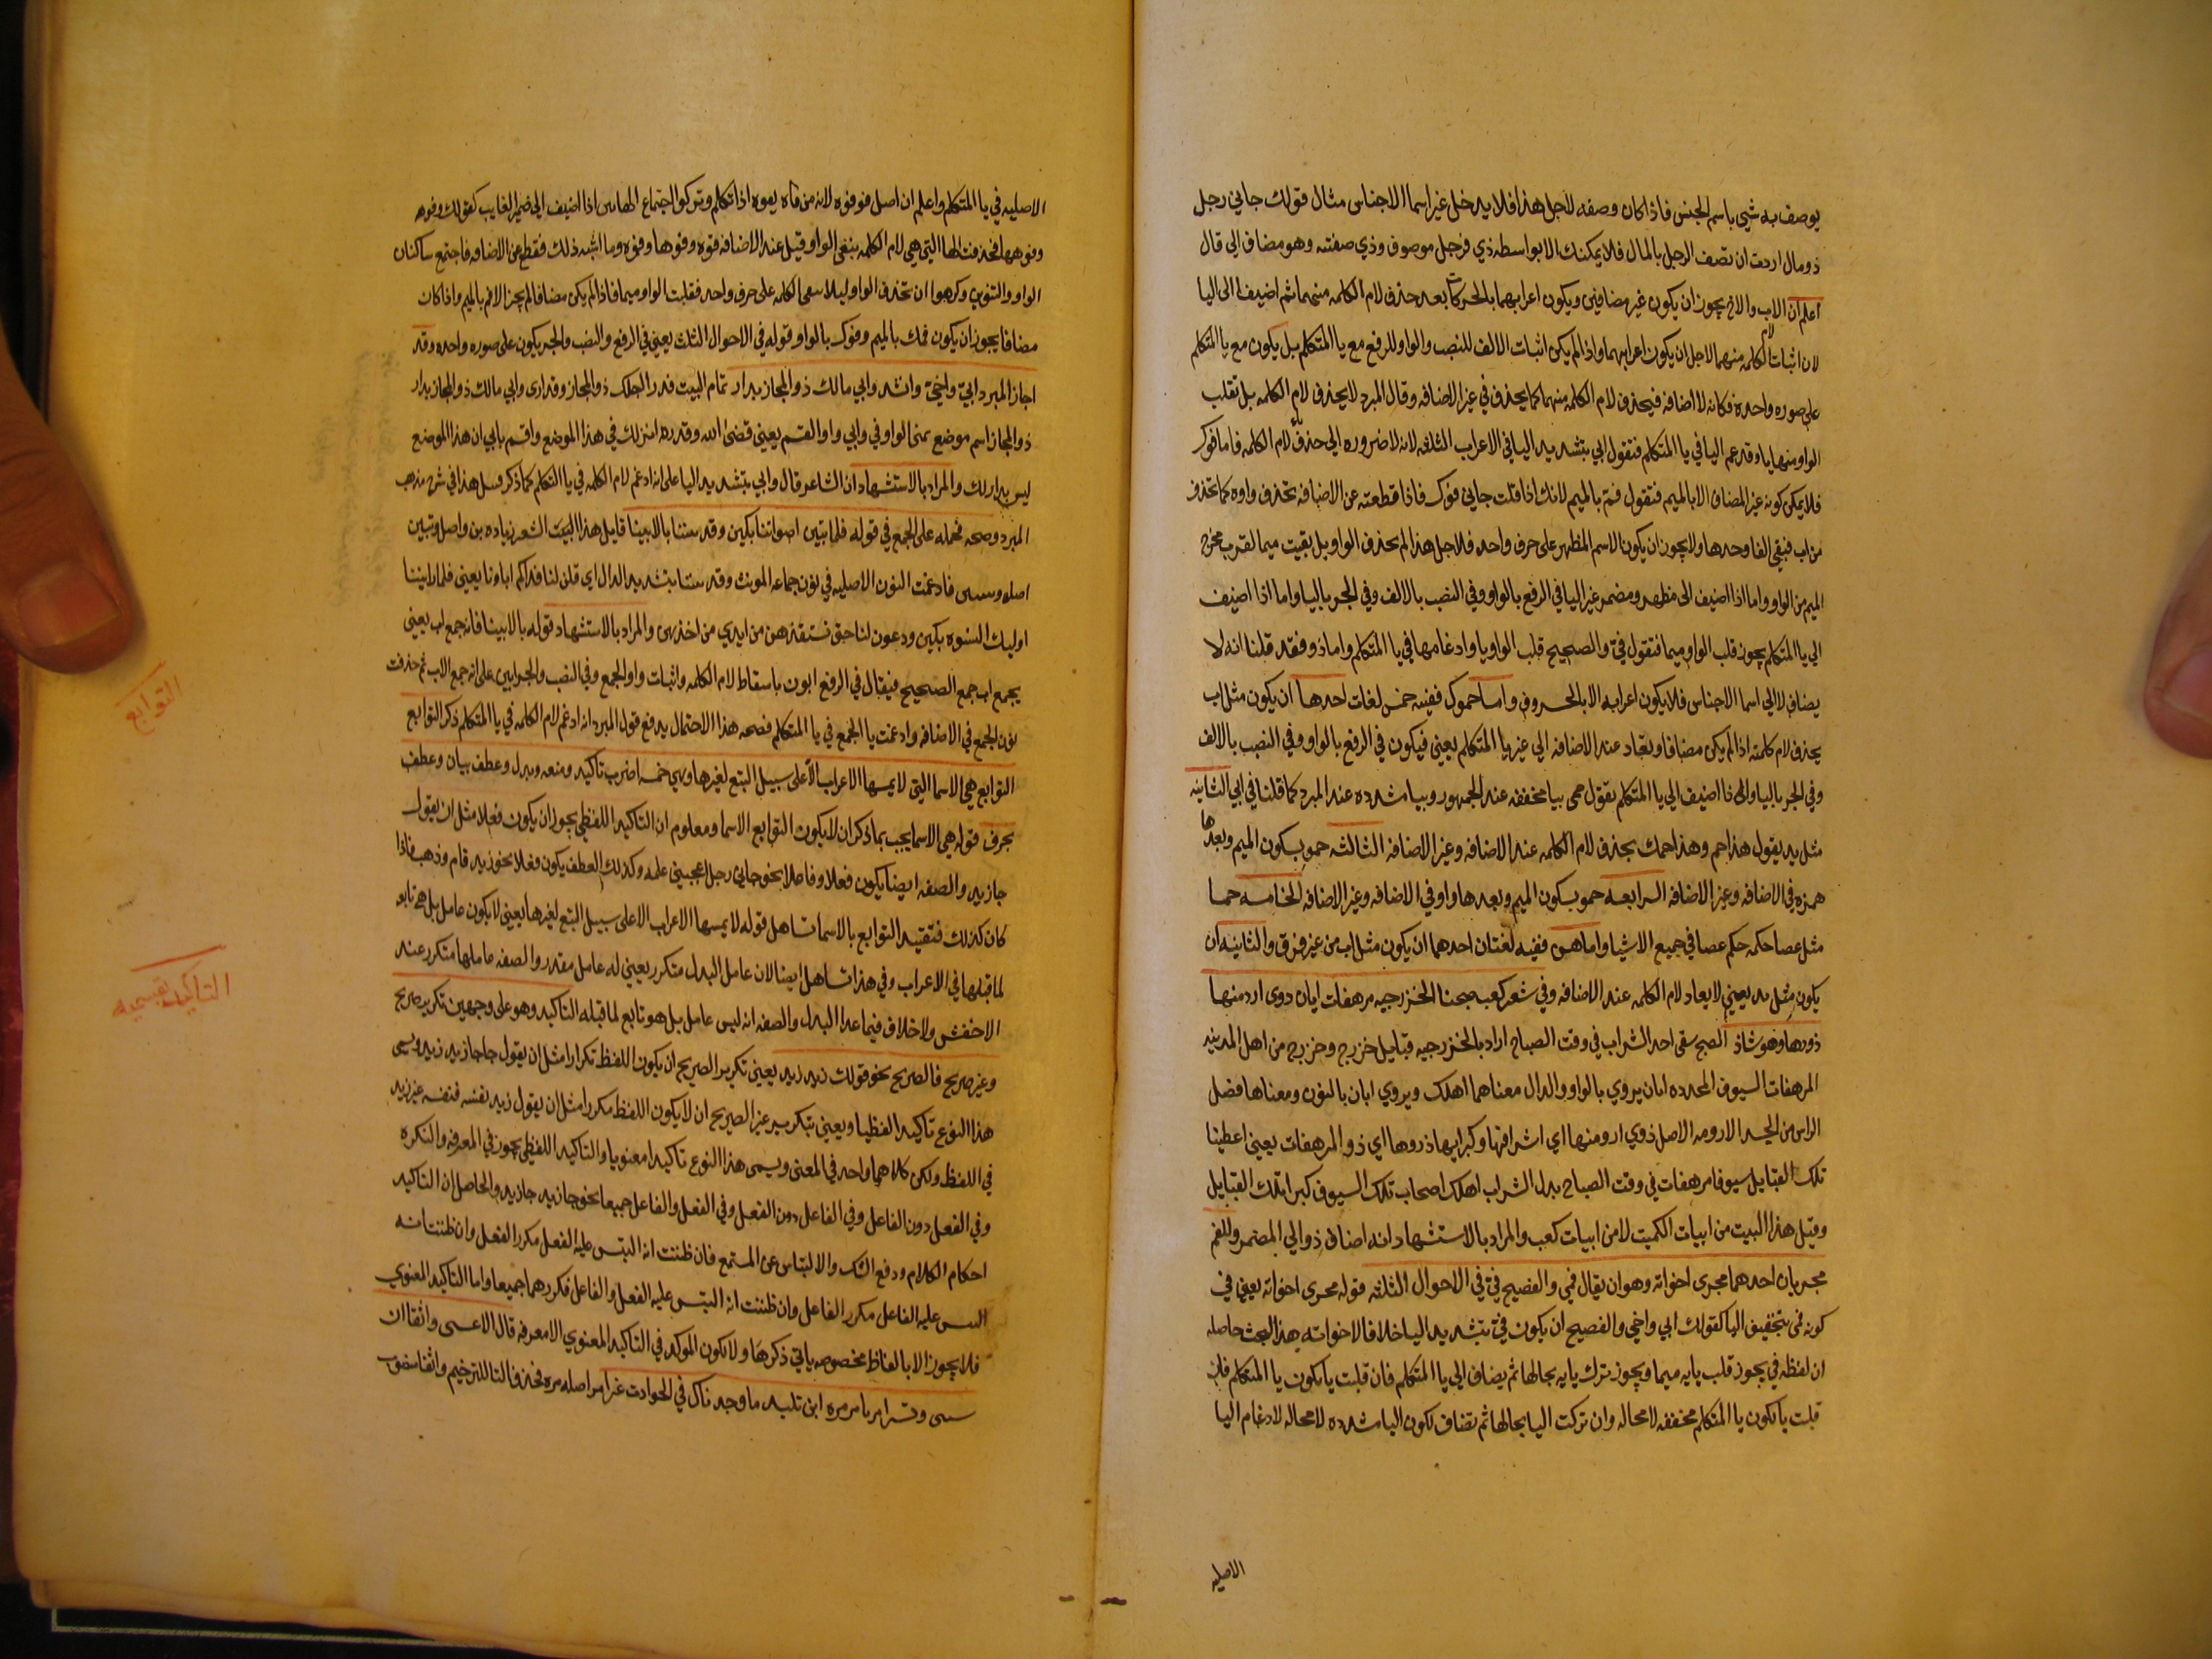 يوصف به شي باسم الجنس فاذا كان وصفه لاجل هذا فلا يدخل غير اسما الاجناس مثال قولك جاني رجل
ذو مال اردت ان تصف الرجل بالمال فلا يمكنك الا بواسطه ذي فرجل موصوف وذي صفته وهو مضاف الى قال
اعلم ان الاب والاخ يجوز ان يكون غير مضافين ويكون اعرابهما بالحركات بعد حذف لام الكلمه منهما ثم اضيفا الى اليا
لان اثبات لام الكلمه منهما لاجل ان يكون اعرابهما واذا لم يكن اثبات الالف للنصب والواو للرفع مع يا المتكلم بل يكون مع يا المتكلم
على صوره واحده فكانه لا اضافه فيحذف لام الكلمه منهما كما يحذف في غير الاضافه وقال المبرد لا يحذف لام الكلمه بل تقلب
الواو منها يا وقد عم اليا في يا المتكلم فتقول ابي بتشديد اليا في الاعراب الثلاثه لانه لا ضروره الى حذف لام الكلمه فاما فوك
فلا يمكن كونه غير المضاف الا بالميم فتقول فم بالميم لانك اذا قلت جاني فوك فاذا قطعته عن الاضافه تحذف واوه كما تحذف
من اب فبقي الفا وحدها ولا يجوز ان يكون الاسم المظهر على حرف واحد فلاجل هذا لم يحذف الواو بل بقيت ميما لقرب مخرج
الميم من الواو واما اذا اضيف الى مظهر ومضمر غير اليا في الرفع بالواو وفي النصب بالالف وفي الجر باليا واما اذا اضيف
الى يا المتكلم يجوز قلب الواو ميما فتقول فيّ والصحيح قلب الواو يا وادغامها في يا المتكلم واما ذو فقد قلنا انه لا
يضاف الا الى اسما الاجناس فلا يكون اعرابه الا بالحروف واما حموك ففيه خمس لغات احدها ان يكون مثل اب
يحذف لام كلمته اذا لم يكن مضافا ويعاد عند الاضافه الى غير يا المتكلم يعني فيكون في الرفع بالواو وفي النصب بالالف
وفي الجر باليا واذا اضيف الى يا المتكلم يقول حمى بيا مخففه عند الجمهور وبيا مشدده عند المبرد كما قلنا في ابي الثانيه
مثل يد يقول هذا حم وهذا حمك بحذف لام الكلمه عند الاضافه وغير الاضافه الثالثه حمو بسكون الميم وبعدها
همزه في الاضافه وغير الاضافه الرابعه حمو بسكون الميم وبعدها واو في الاضافه وغير الاضافه الخامسه حما
مثل عصا حكمه حكم عصا في جميع الاشيا واما هن ففيه لغتان احدهما ان يكون مثل اب من غير فرق والثانيه ان
يكون مثل يد يعني لا يعاد لام الكلمه عند الاضافه وفي شعر كعب صبحنا الخزرجيه مرهفات ابان ذوى ارومتها
ذووها وهو شاذ الصبح سقى احد الشراب في وقت الصباح اراد بالخزرجيه قبايل خزرج وخزرج من اهل المدينه
المرهفات السيوف المحدده ابان يروي بالواو والدال معناهما اهلك ويروي ابان بالنون ومعناها فضل
الراس من الجسد الارومه الاصل ذوي ارومتها اي اشرافها وكبرايها ذووها اي ذو المرهفات يعني اعطينا
تلك القبايل سيوفا مرهفات في وقت الصباح بدل الشراب اهلك اصحاب تلك السيوف كبرا تلك القبايل
وقيل هذا البيت من ابيات الكميت لا من ابيات كعب والمراد بالاستشهاد انه اضاف ذو الى المضمر وللفم
مجريان احدهما مجرى اخواته وهو ان يقال فمي والفصيح فيّ في الاحوال الثلثه قوله مجرى اخواته يعني في
كونه فمي بتخفيف اليا كقولك ابي واخي والفصيح ان يكون فيّ بتشديد اليا خلافا لاخواته هذا البحث حاصله
ان لفظه في يجوز قلب يايه ميما ويجوز ترك يايه بحالها ثم يضاف الى يا المتكلم فان قلبت يا يكون يا المتكلم فان
قلبت يا يكون يا المتكلم مخففه لا محاله وان تركت اليا بحالها ثم تضاف تكون اليا مشدده لا محاله لادغام اليا
الاصليه
الاصليه في يا المتكلم واعلم ان اصل فو فوه لانه من فاه يفوه اذا تكلم وتركوا اجتماع الهاين اذا اضيف الى ضمير الغايب كقولك وفوهه
وفوهها فحذفت الها التي هي لام الكلمه بنفي الواو وقيل عند الاضافه فوه وفوها وفوه وما اشبه ذلك فقطع عن الاضافه فاجتمع ساكنان
الواو والتنوين وكرهوا ان تحذف الواو ليلا يبقى الكلمه على حرف واحد فقلبت الواو ميما فاذا لم يكن مضافا لم يجز الا فم بالميم واذا كان
مضافا يجوز ان يكون فمك بالميم وفوك بالواو قوله في الاحوال الثلث يعني في الرفع والنصب والجر يكون على صوره واحده وقد
اجاز المبرد ابيّ واخيّ وانشد وابي مالك ذو المجاز بدار تمام البيت قدر احلك ذو المجاز وقد ارى وابي مالك ذو المجاز بدار
ذو المجاز اسم موضع بمنى الواو في وابي واو القسم يعني قضى الله وقدره انزلك في هذا الموضع واقسم بابي ان هذا الموضع
ليس بدار لك والمراد بالاستشهاد ان الشاعر قال وابي بتشديد اليا على انه ادغم لام الكلمه في يا المتكلم كما ذكر قبل هذا في شرح مذهب
المبرد وصحه فحمله على الجمع في قوله فلما تبين اصواتنا بكين وفديننا بالابينا قايل هذا البيت الشعر زياده بن واصل وتبين
اصله فادغمت النون الاصليه في نون جماعه المونث وفديننا بتشديد الدال اي قلن لنا فداكم اباونا يعني فلما راينا
اوليك النسوه بكين ودعون لنا حتى نستنقذهن من ايدي من اخذهن والمراد بالاستشهاد قوله بالابينا فانه جمع اب يعني
يجمع اب جمع الصحيح فيقال في الرفع ابون باسقاط لام الكلمه واثبات واو الجمع وفي النصب والجر ابين على انه جمع الاب ثم حذفت
نون الجمع في الاضافه وادغمت يا الجمع في يا المتكلم فصحه هذا الاحتمال يدفع قول المبرد انه ادغم لام الكلمه في يا المتكلم ذكر التوابع
التوابع هي الاسما التي لا يمسها الاعراب الا على سبيل التبع لغيرها وهي خمسه اضرب تاكيد وصفه وبدل وعطف بيان وعطف
بحرف قوله هي الاسما يجب بما ذكر ان لا يكون التوابع الا اسما ومعلوم ان التاكيد اللفظي يجوز ان يكون فعلا مثل ان يقول
جا زيد والصفه ايضا يكون فعلا وفاعلا نحو جاني رجل اعجبني علمه وكذلك العطف يكون فعلا نحو زيد قام وذهب فاذا
كان كذلك فتقييد التوابع بالاسما تساهل قوله لا يمسها الاعراب الا على سبيل التبع لغيرها يعني لا يكون عامل بل هي تابعه
لما قبلها في الاعراب وفي هذا تساهل ايضا لان عامل البدل متكرر يعني له عامل مقدر والصفه عاملها متكرر عند
الاخفش ولا خلاف فيما عدا البدل والصفه انه ليس عامل بل هو تابع لما قبله التاكيد وهو على وجهين تكرير صريح
وغير صريح فالصريح نحو قولك زيد زيد يعني تكرير الصريح ان يكون اللفظ تكرارا مثل ان يقول جا جا زيد زيد ويسمى
هذا النوع تاكيدا لفظيا ويعني بتكرير غير الصريح ان لا يكون اللفظ مكررا مثل ان يقول زيد نفسه فنفسه غير زيد
في اللفظ ولكن كلاهما واحد في المعنى ويسمى هذا النوع تاكيدا معنويا والتاكيد اللفظي يجوز في المعرفه والنكره
وفي الفعل دون الفاعل وفي الفاعل دون الفعل وفي الفعل والفاعل جميعا نحو جا زيد جا زيد والحاصل ان التاكيد
احكام الكلام ودفع الشك والالتباس عن المستمع فان ظننت انه التبس عليه الفعل مكرر الفعل وان ظننت انه
التبس عليه الفاعل مكرر الفاعل وان ظننت انه التبس عليه الفعل والفاعل فكررهما جميعا واما التاكيد المعنوي
فلا يجوز الا بالفاظ مخصوصه ياتي ذكرها ولا يكون الموكد في التاكيد المعنوي الا معرفه قال الاعشى واثقا ان
ابن تليد ما وجدناك في الحوادث غرا مر اصله مره فحذف التا للترخيم واثقا منصوب
التوابع
التاكيد بقسميه